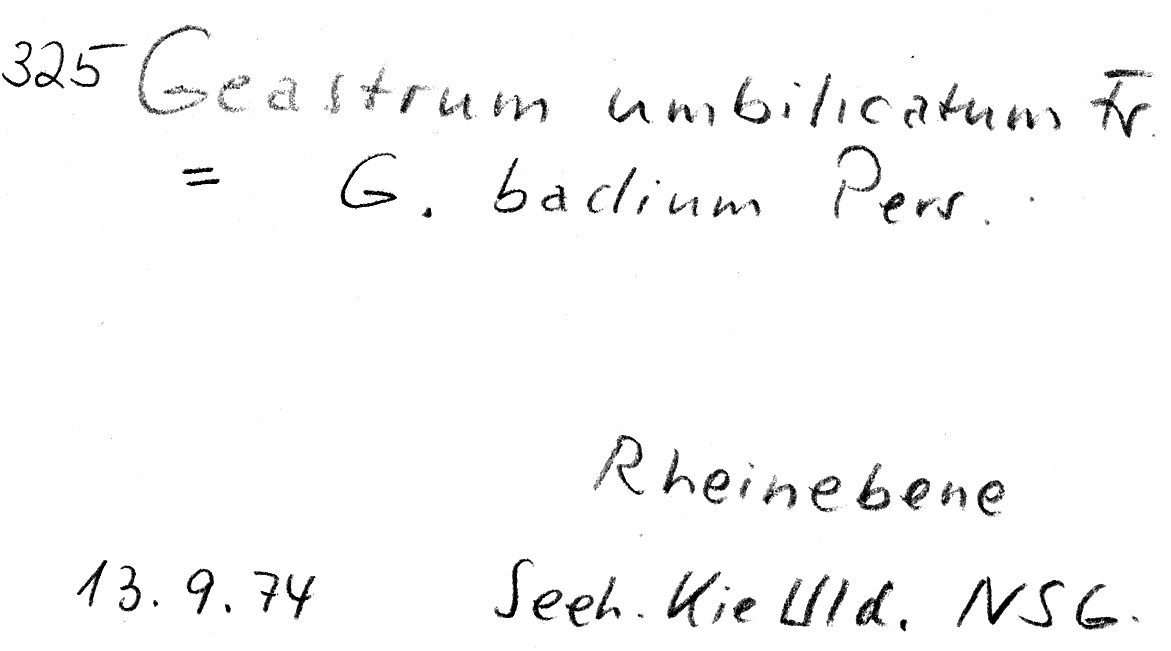 325 Geastrum umbilicatum Fr.
= G. badium Pers.
Rheinebene
13.9.74 Seeh. Kie Wld. NSG.